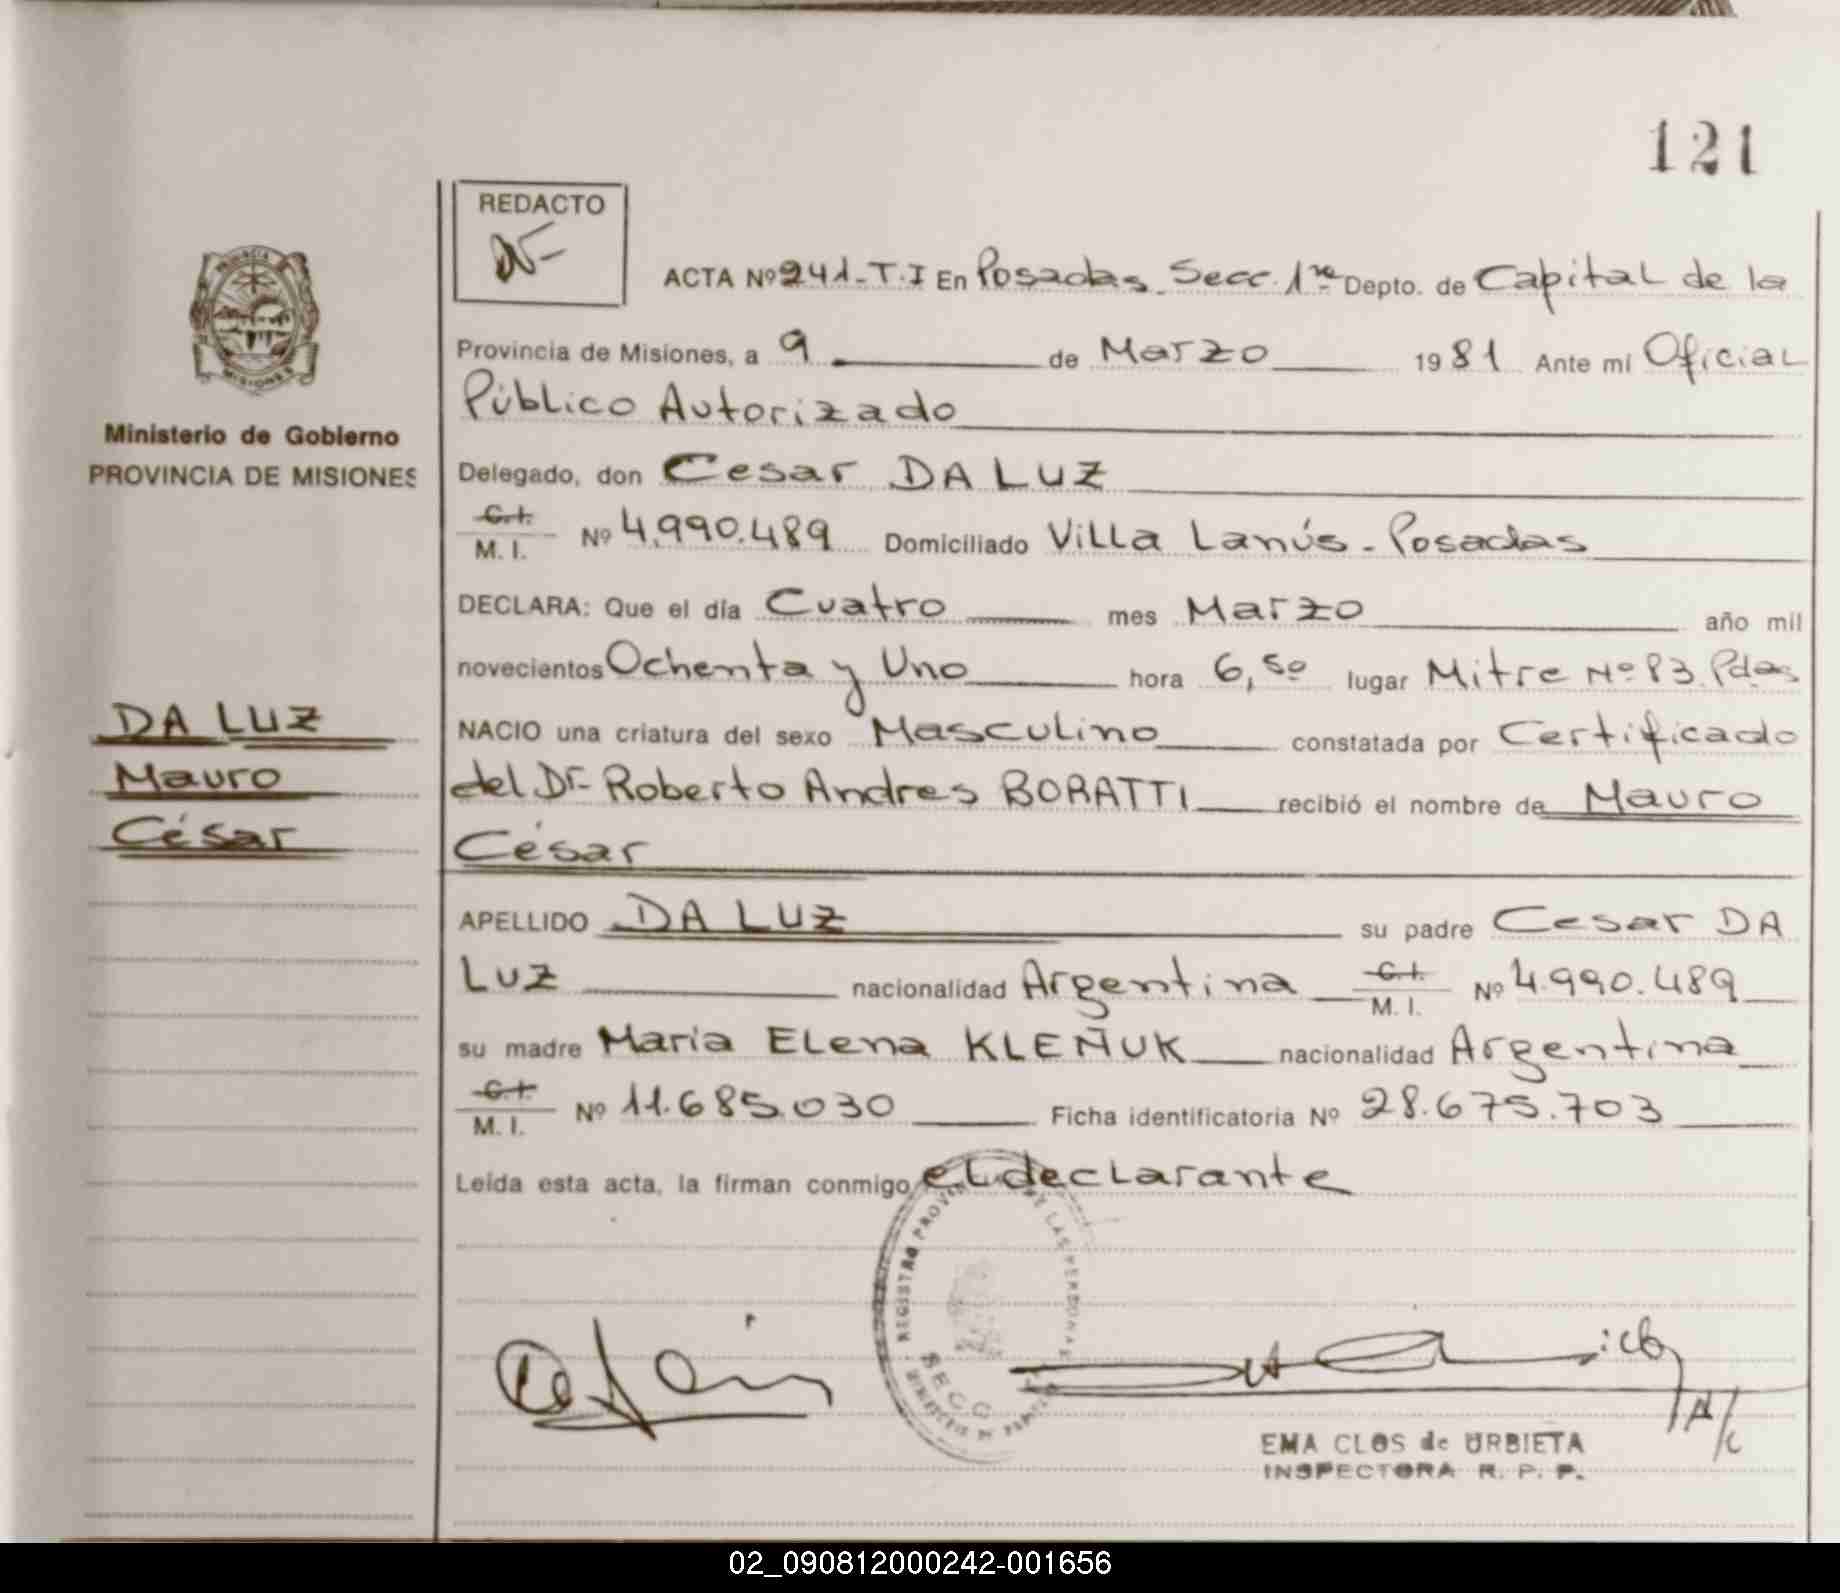 121
REDACTO
ACTA Nº 241-T.I En Posadas Secc. 1ra Depto. de Capital de la
Provincia de Misiones, a 9 de Marzo 1981 Ante mi Oficial
Público Autorizado
Ministerio de Gobierno
PROVINCIA DE MISIONES
Delegado, don Cesar DA LUZ
C.I.
M. I. Nº 4.990.489 Domiciliado Villa Lanús - Posadas
DECLARA: Que el día Cuatro mes Marzo año mil
novecientos Ochenta y Uno hora 6,50 lugar Mitre Nº 83 Pdas
DA LUZ
Mauro
César
NACIO una criatura del sexo Masculino constatada por Certificado
del Dr. Roberto Andres BORATTI recibió el nombre de Mauro
César
APELLIDO DA LUZ su padre Cesar DA
LUZ nacionalidad Argentina C.I. M. I. Nº 4.990.489
su madre Maria Elena KLEÑUK nacionalidad Argentina
C.I.
M. I. Nº 11.685.030 Ficha identificatoria Nº 28.675.703
Leída esta acta, la firman conmigo el declarante
REGISTRO PROVIN DE LAS PERSONAS
SECC
EMA CLOS de URBIETA
INSPECTORA R. P. P.
02_090812000242-001656